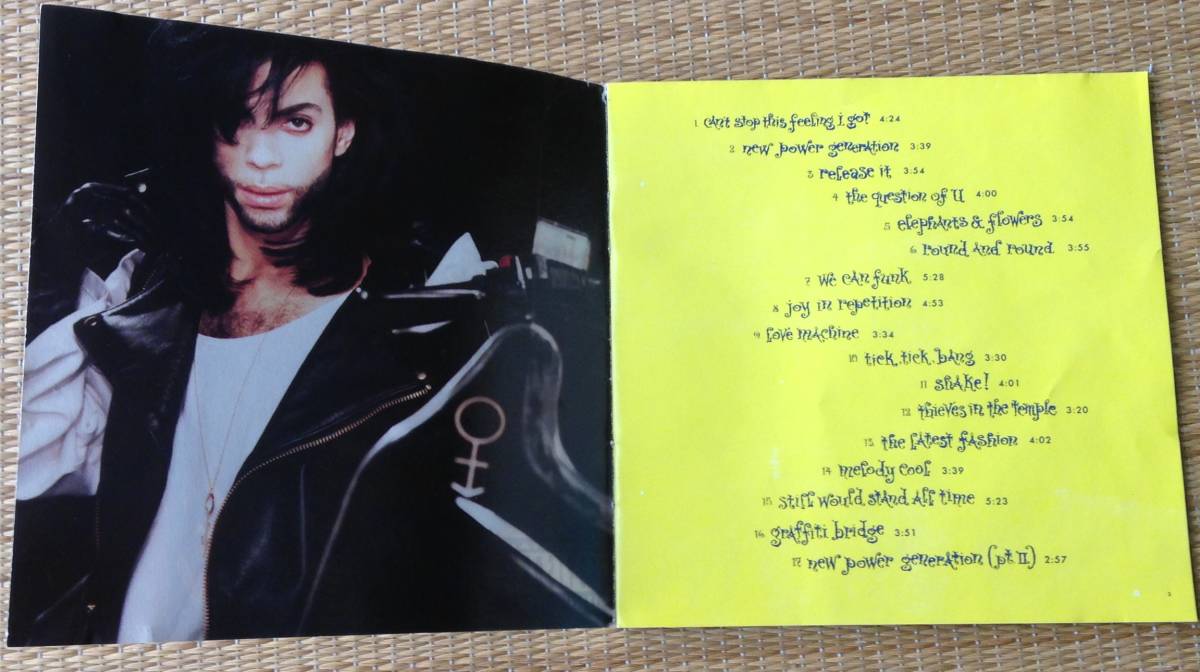 1 can't stop this feeling I got 4:24
2 new power generation 3:39
3 release it 3:54
4 the question of U 4:00
5 elephants & flowers 3:54
6 round and round 3:55
7 we can funk 5:28
8 joy in repetition 4:53
9 love machine 3:34
10 tick, tick, bang 3:30
11 shake! 4:01
12 thieves in the temple 3:20
13 the latest fashion 4:02
14 melody cool 3:39
15 still would stand all time 5:23
16 graffiti bridge 3:51
17 new power generation (pt. II) 2:57
3